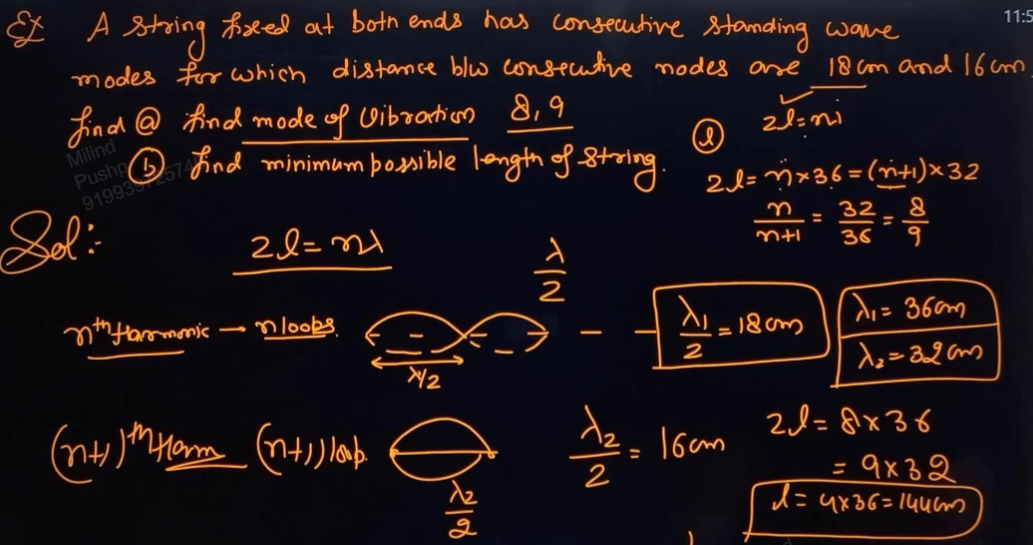 Ex A string fixed at both ends has consecutive standing wave
11:5
modes for which distance b/w consecutive nodes are 18 cm and 16 cm
find (a) find mode of vibration 8, 9
(b) find minimum possible length of string.
Milind
Pushp
(l) 2l = nλ
2l = n×36 = (n+1)×32
n/n+1 = 32/36 = 8/9
Sol:-
2l = nλ
λ/2
nth Harmonic → n loops.
λ/2
λ₁/2 = 18 cm
λ₁ = 36cm
λ₂ = 32 cm
(n+1)th Harm (n+1) loop.
λ₂/2
λ₂/2 = 16 cm
2l = 8×36
= 9×32
l = 4×36 = 144cm